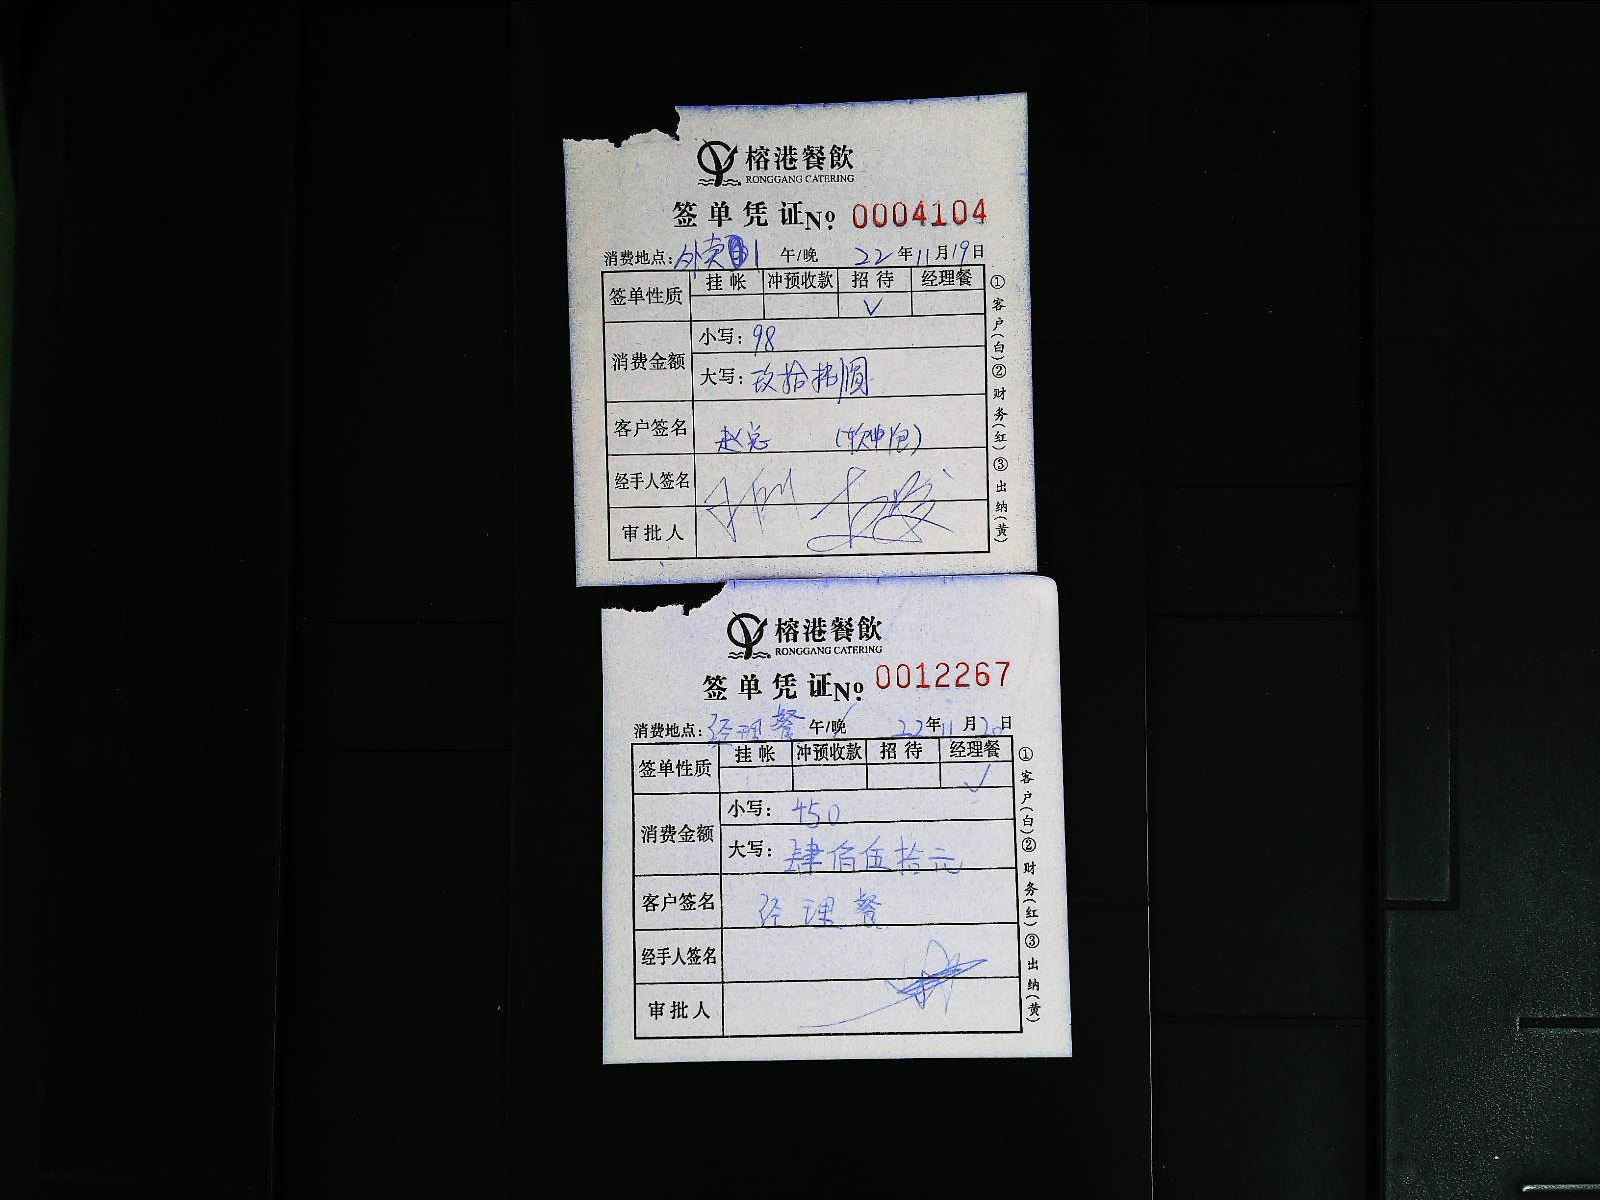 榕港餐飲
RONGGANG CATERING
签单凭证 No. 0004104
消费地点: 外卖 1 午/晚 22年11月19日
签单性质 挂帐 冲预收款 招待 经理餐
✓
消费金额 小写: 98
大写: 玖拾捌圆
客户签名 赵总 (软中包)
经手人签名
审批人
①客户(白)②财务(红)③出纳(黄)
榕港餐飲
RONGGANG CATERING
签单凭证 No. 0012267
消费地点: 经理餐 午/晚 22年11月20日
签单性质 挂帐 冲预收款 招待 经理餐
✓
消费金额 小写: 450
大写: 肆佰伍拾元
客户签名 经理餐
经手人签名
审批人
①客户(白)②财务(红)③出纳(黄)